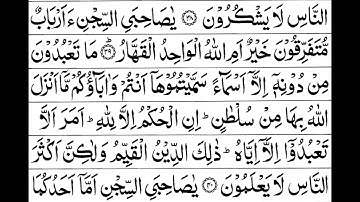 النَّاسِ لَا يَشْكُرُوْنَ ﴿۳۸﴾ يٰصَاحِبَيِ السِّجْنِ ءَاَرْبَابٌ
مُّتَفَرِّقُوْنَ خَيْرٌ اَمِ اللّٰهُ الْوَاحِدُ الْقَهَّارُ ﴿۳۹﴾ مَا تَعْبُدُوْنَ
مِنْ دُوْنِهٖۤ اِلَّاۤ اَسْمَآءً سَمَّيْتُمُوْهَاۤ اَنْتُمْ وَاٰبَآؤُكُمْ مَّاۤ اَنْزَلَ
اللّٰهُ بِهَا مِنْ سُلْطٰنٍ ؕ اِنِ الْحُكْمُ اِلَّا لِلّٰهِ ؕ اَمَرَ اَلَّا
تَعْبُدُوْۤا اِلَّاۤ اِيَّاهُ ؕ ذٰلِكَ الدِّيْنُ الْقَيِّمُ وَلٰكِنَّ اَكْثَرَ
النَّاسِ لَا يَعْلَمُوْنَ ﴿۴۰﴾ يٰصَاحِبَيِ السِّجْنِ اَمَّاۤ اَحَدُكُمَا